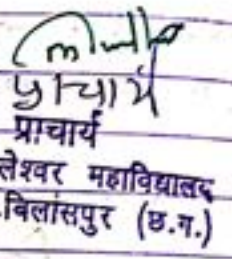 प्राचार्य
प्राचार्य
लेश्वर महाविद्यालय
बिलासपुर (छ.ग.)